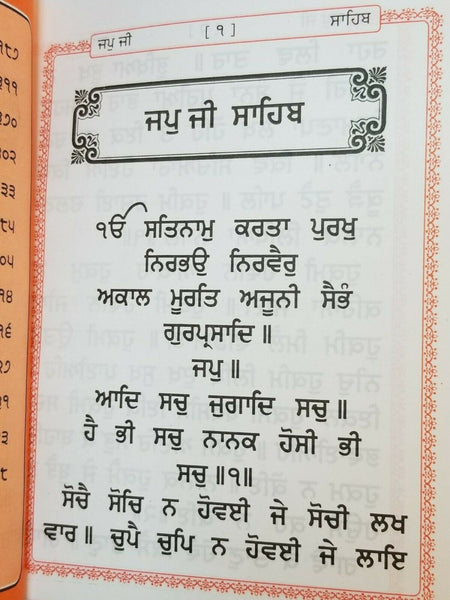 ੧੮੭
੩੧੧
੩੭੦
੪੦੨
ਜਪੁ ਜੀ [ ੧ ] ਸਾਹਿਬ
ਜਪੁ ਜੀ ਸਾਹਿਬ
ੴ ਸਤਿਨਾਮੁ ਕਰਤਾ ਪੁਰਖੁ
ਨਿਰਭਉ ਨਿਰਵੈਰੁ
ਅਕਾਲ ਮੂਰਤਿ ਅਜੂਨੀ ਸੈਭੰ
ਗੁਰਪ੍ਰਸਾਦਿ ॥
ਜਪੁ ॥
ਆਦਿ ਸਚੁ ਜੁਗਾਦਿ ਸਚੁ ॥
ਹੈ ਭੀ ਸਚੁ ਨਾਨਕ ਹੋਸੀ ਭੀ
ਸਚੁ ॥੧॥
ਸੋਚੈ ਸੋਚਿ ਨ ਹੋਵਈ ਜੇ ਸੋਚੀ ਲਖ
ਵਾਰ ॥ ਚੁਪੈ ਚੁਪਿ ਨ ਹੋਵਈ ਜੇ ਲਾਇ